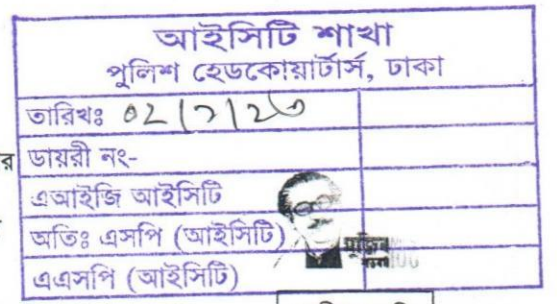 আইসিটি শাখা
পুলিশ হেডকোয়ার্টার্স, ঢাকা
তারিখঃ ০২/১/২৩
র
ডায়রী নং-
এআইজি আইসিটি
অতিঃ এসপি (আইসিটি)
মুজিব
১০০
এএসপি (আইসিটি)